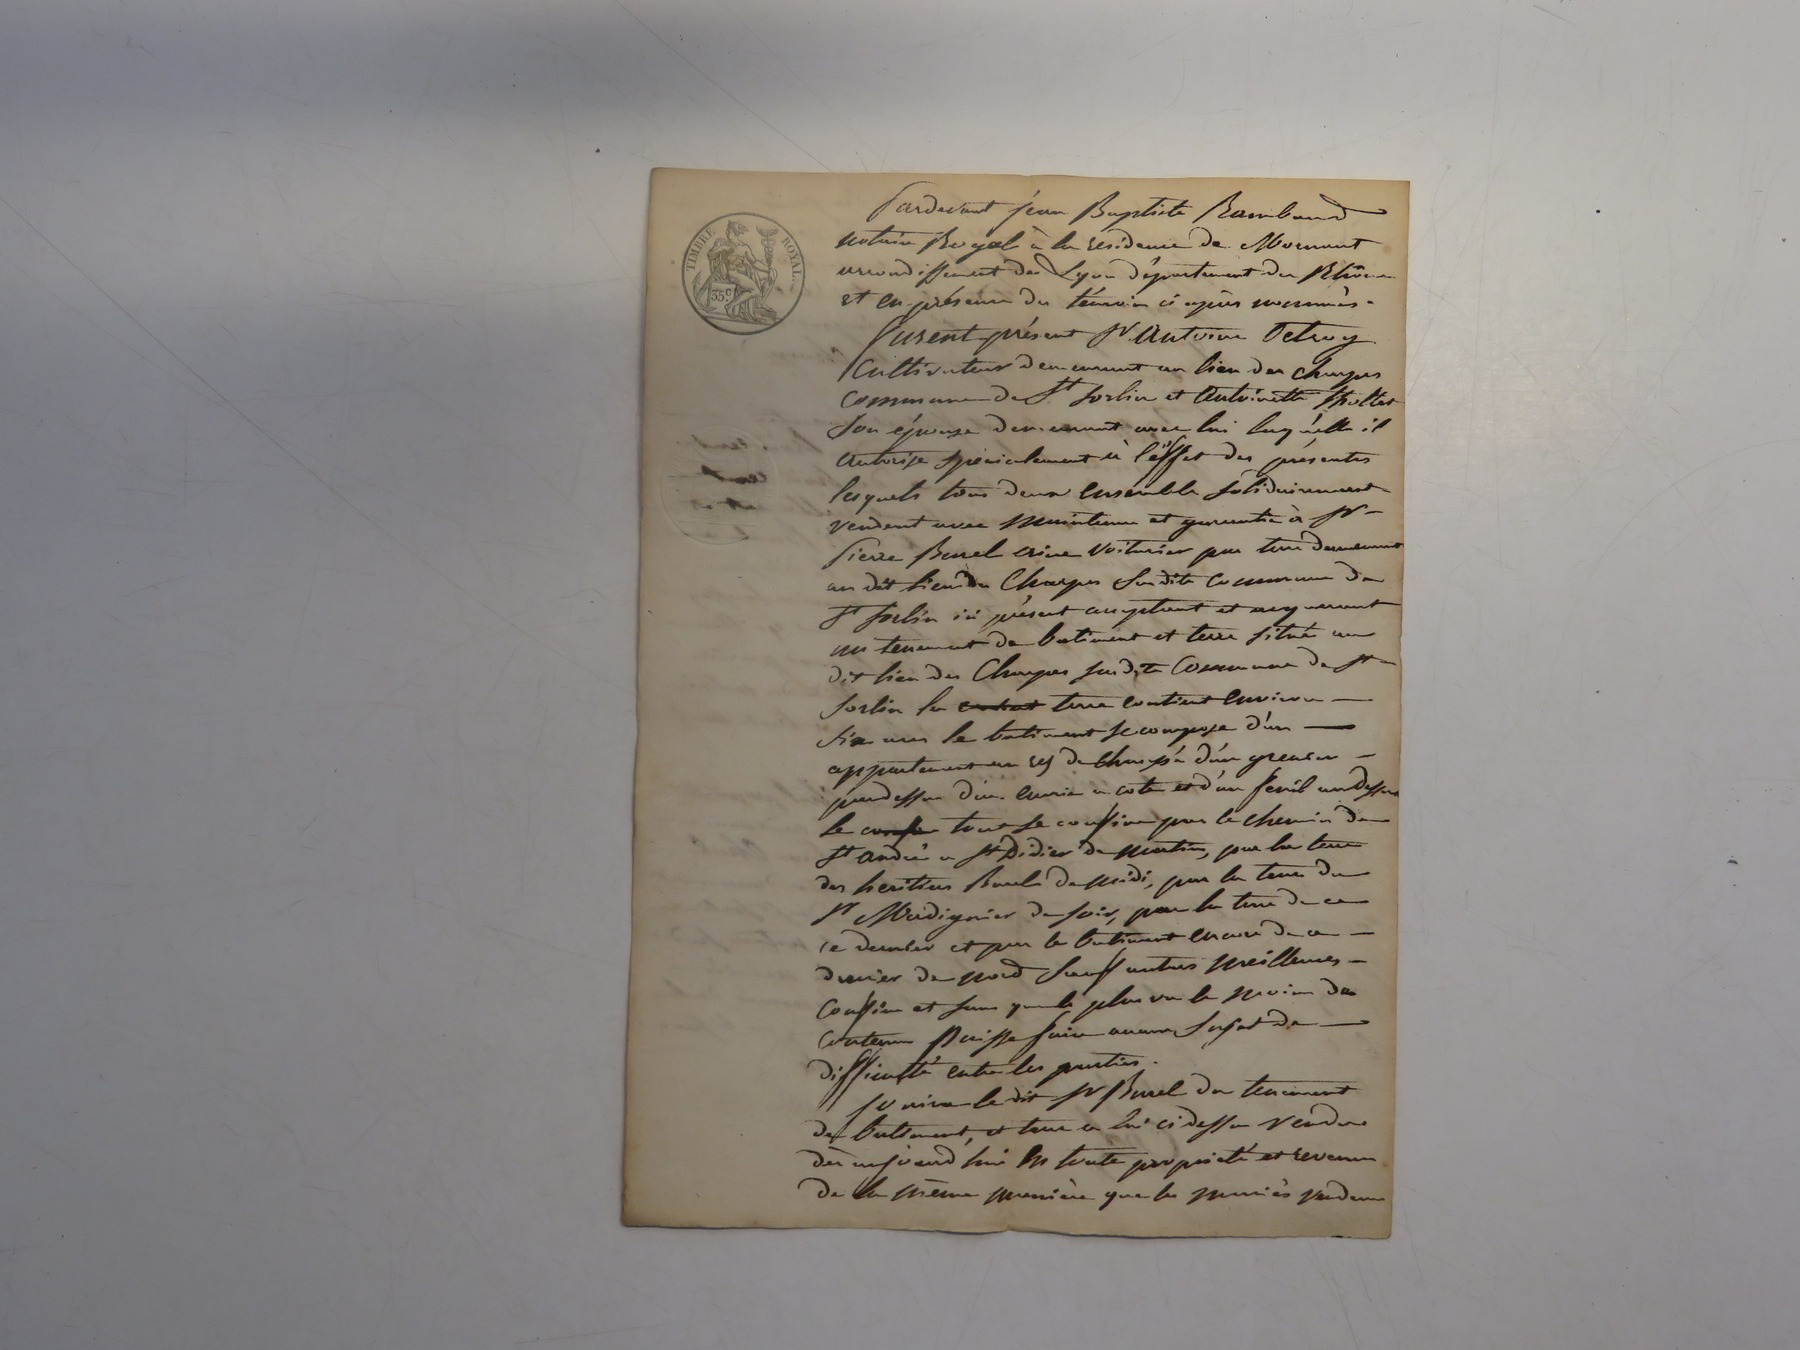 TIMBRE ROYAL
35 c
Pardevant jean Baptiste Rambaud
notaire Royal à la residence de Mornant
arrondissement de Lyon département du Rhône
et en présence des témoins ci après nommés -
furent présent Sr Antoine Delroy
Cultivateur demeurant au lieu des Charpes
Commune de St Sorlin et Antoinette
Son épouse demeurant avec lui laquelle il
autorise spécialement à l'effet des présentes
lesquels tous deux ensemble solidairement
vendent avec maintenue et garantie à Sr
Pierre Burel voiturier par terre demeurant
au dit lieu des Charpes susdite Commune de
St Sorlin ici présent acceptant et acquerant
un tenement de batiment et terre situé au
dit lieu des Charpes susdite Commune de St
Sorlin la terre contient environ
six ares le batiment se compose d'un
appartement au rez de chaussé d'un grenier
pardessus d'un ecurie a coté et d'un fenil au dessus
le tout se confine par le chemin de
St andré a St Didier de matin, par la terre
des heritiers de midi, par la terre du
Sr de soir, par la terre de ce
ce dernier et par le batiment encore de ce
dernier de nord sauf autres meilleures
Confins et sans que le plus ou le moins de
Contenue Puisse faire aucun sujet de
difficulté entre les parties.
Jouira le dit Sr Burel du tenement
de batiment, et terre a lui ci dessus vendu
dès aujourd hui en toute proprieté et revenu
de la même manière que les mariés vendeurs